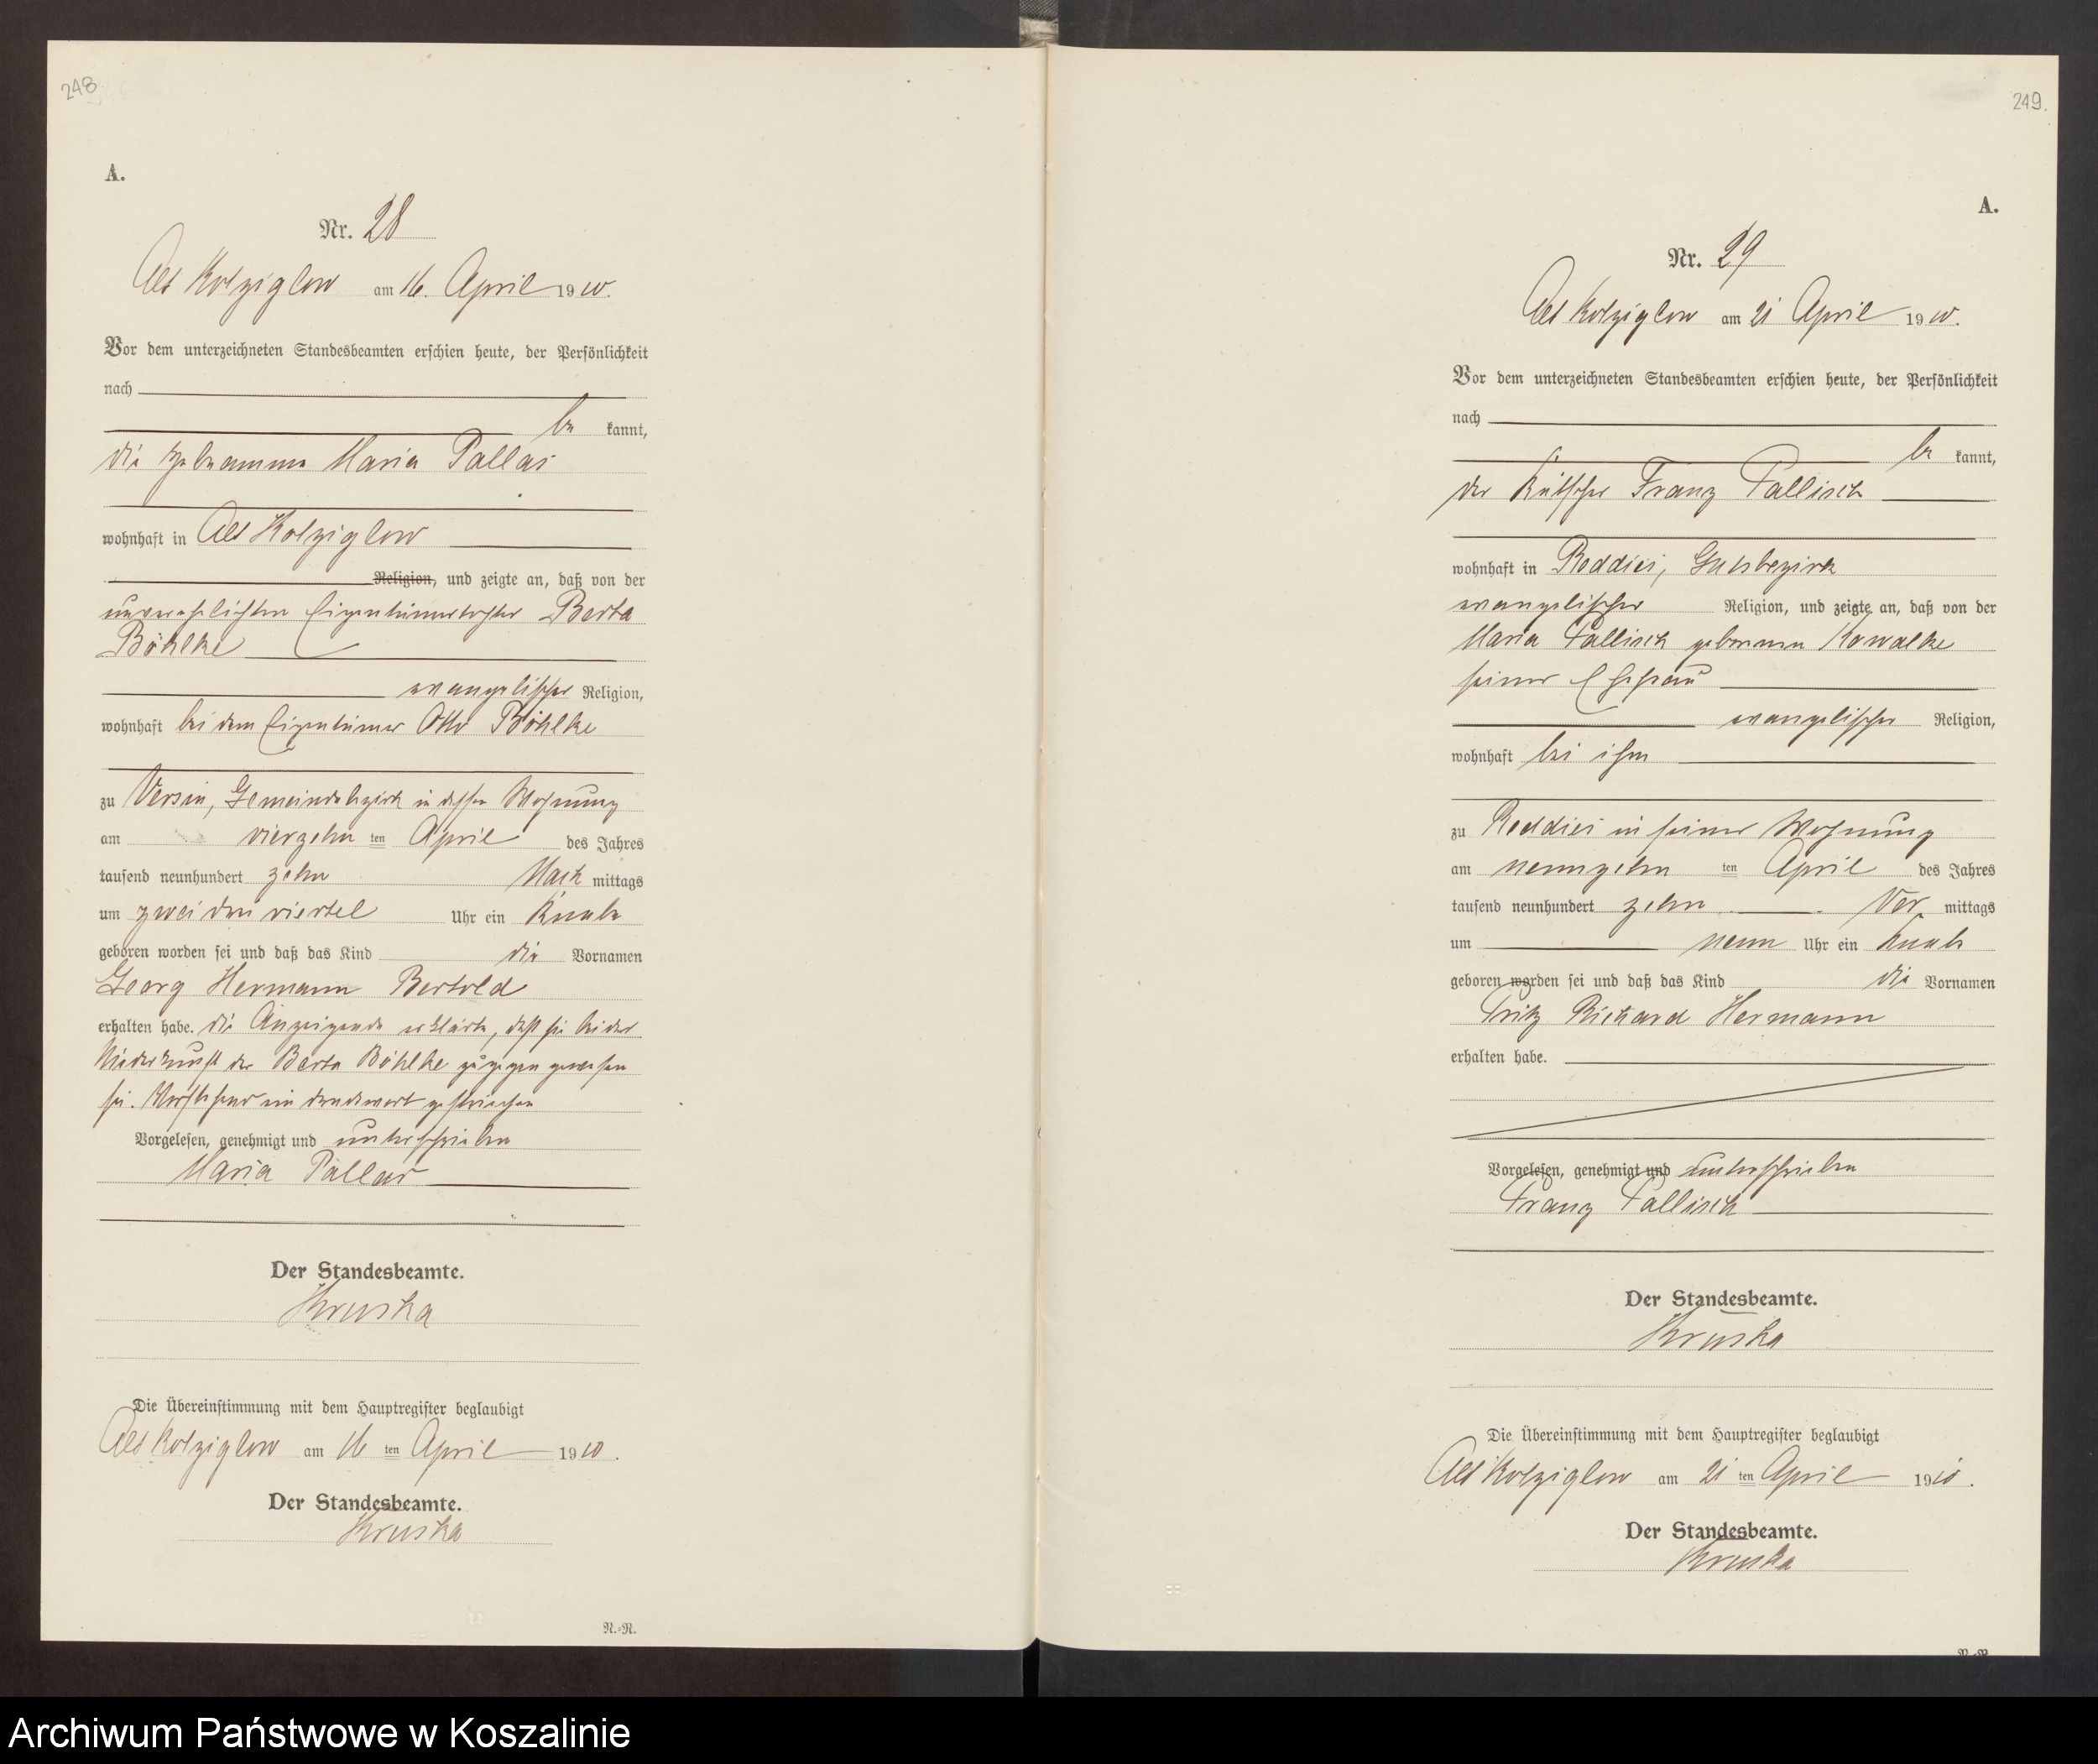 248
A.
Nr. 28
Alt Kolziglow am 16. April 1910.
Vor dem unterzeichneten Standesbeamten erschien heute, der Persönlichkeit
nach
be kannt,
die Hebeamme Maria Pallas
wohnhaft in Alt Kolziglow
Religion, und zeigte an, daß von der
unverehelichten Eigentümertochter Berta
Böhlke
evangelischer Religion,
wohnhaft bei dem Eigentümer Otto Böhlke
zu Versin, Gemeindebezirk in dessen Wohnung
am vierzehn ten April des Jahres
tausend neunhundert zehn Nach mittags
um zwei drei viertel Uhr ein Knabe
geboren worden sei und daß das Kind die Vornamen
Georg Hermann Bertold
erhalten habe. Die Anzeigende erklärte, daß sie bei der
Niederkunft der Berta Böhlke zugegen gewesen
sei. Vorstehend ein Druckwort gestrichen
Vorgelesen, genehmigt und unterschrieben
Maria Pallas
Der Standesbeamte.
Kruska
Die Übereinstimmung mit dem Hauptregister beglaubigt
Alt Kolziglow am 16 ten April 1910.
Der Standesbeamte.
Kruska
N.-N.
249.
A.
Nr. 29
Alt Kolziglow am 21 April 1910.
Vor dem unterzeichneten Standesbeamten erschien heute, der Persönlichkeit
nach
be kannt,
der Kutscher Franz Pallisch
wohnhaft in Reddies, Gutsbezirk
evangelischer Religion, und zeigte an, daß von der
Maria Pallisch geborenen Kowalke
seiner Ehefrau
evangelischer Religion,
wohnhaft bei ihm
zu Reddies in seiner Wohnung
am neunzehn ten April des Jahres
tausend neunhundert zehn Vor mittags
um neun Uhr ein Knabe
geboren worden sei und daß das Kind die Vornamen
Fritz Richard Hermann
erhalten habe.
Vorgelesen, genehmigt und unterschrieben
Franz Pallisch
Der Standesbeamte.
Kruska
Die Übereinstimmung mit dem Hauptregister beglaubigt
Alt Kolziglow am 21 ten April 1910.
Der Standesbeamte.
Kruska
Archiwum Państwowe w Koszalinie